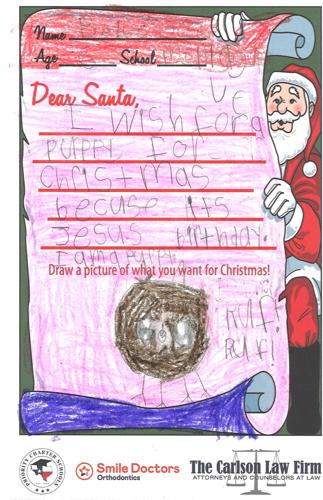 Name
Age School
Dear Santa,
I wish for a
puppy for
christmas
becuse its
Jesus birthday.
I am a puppy
Draw a picture of what you want for Christmas!
Ruf!
Ruf!
PRIORITY CHARTER SCHOOLS
Smile Doctors
Orthodontics
The Carlson Law Firm
ATTORNEYS AND COUNSELORS AT LAW